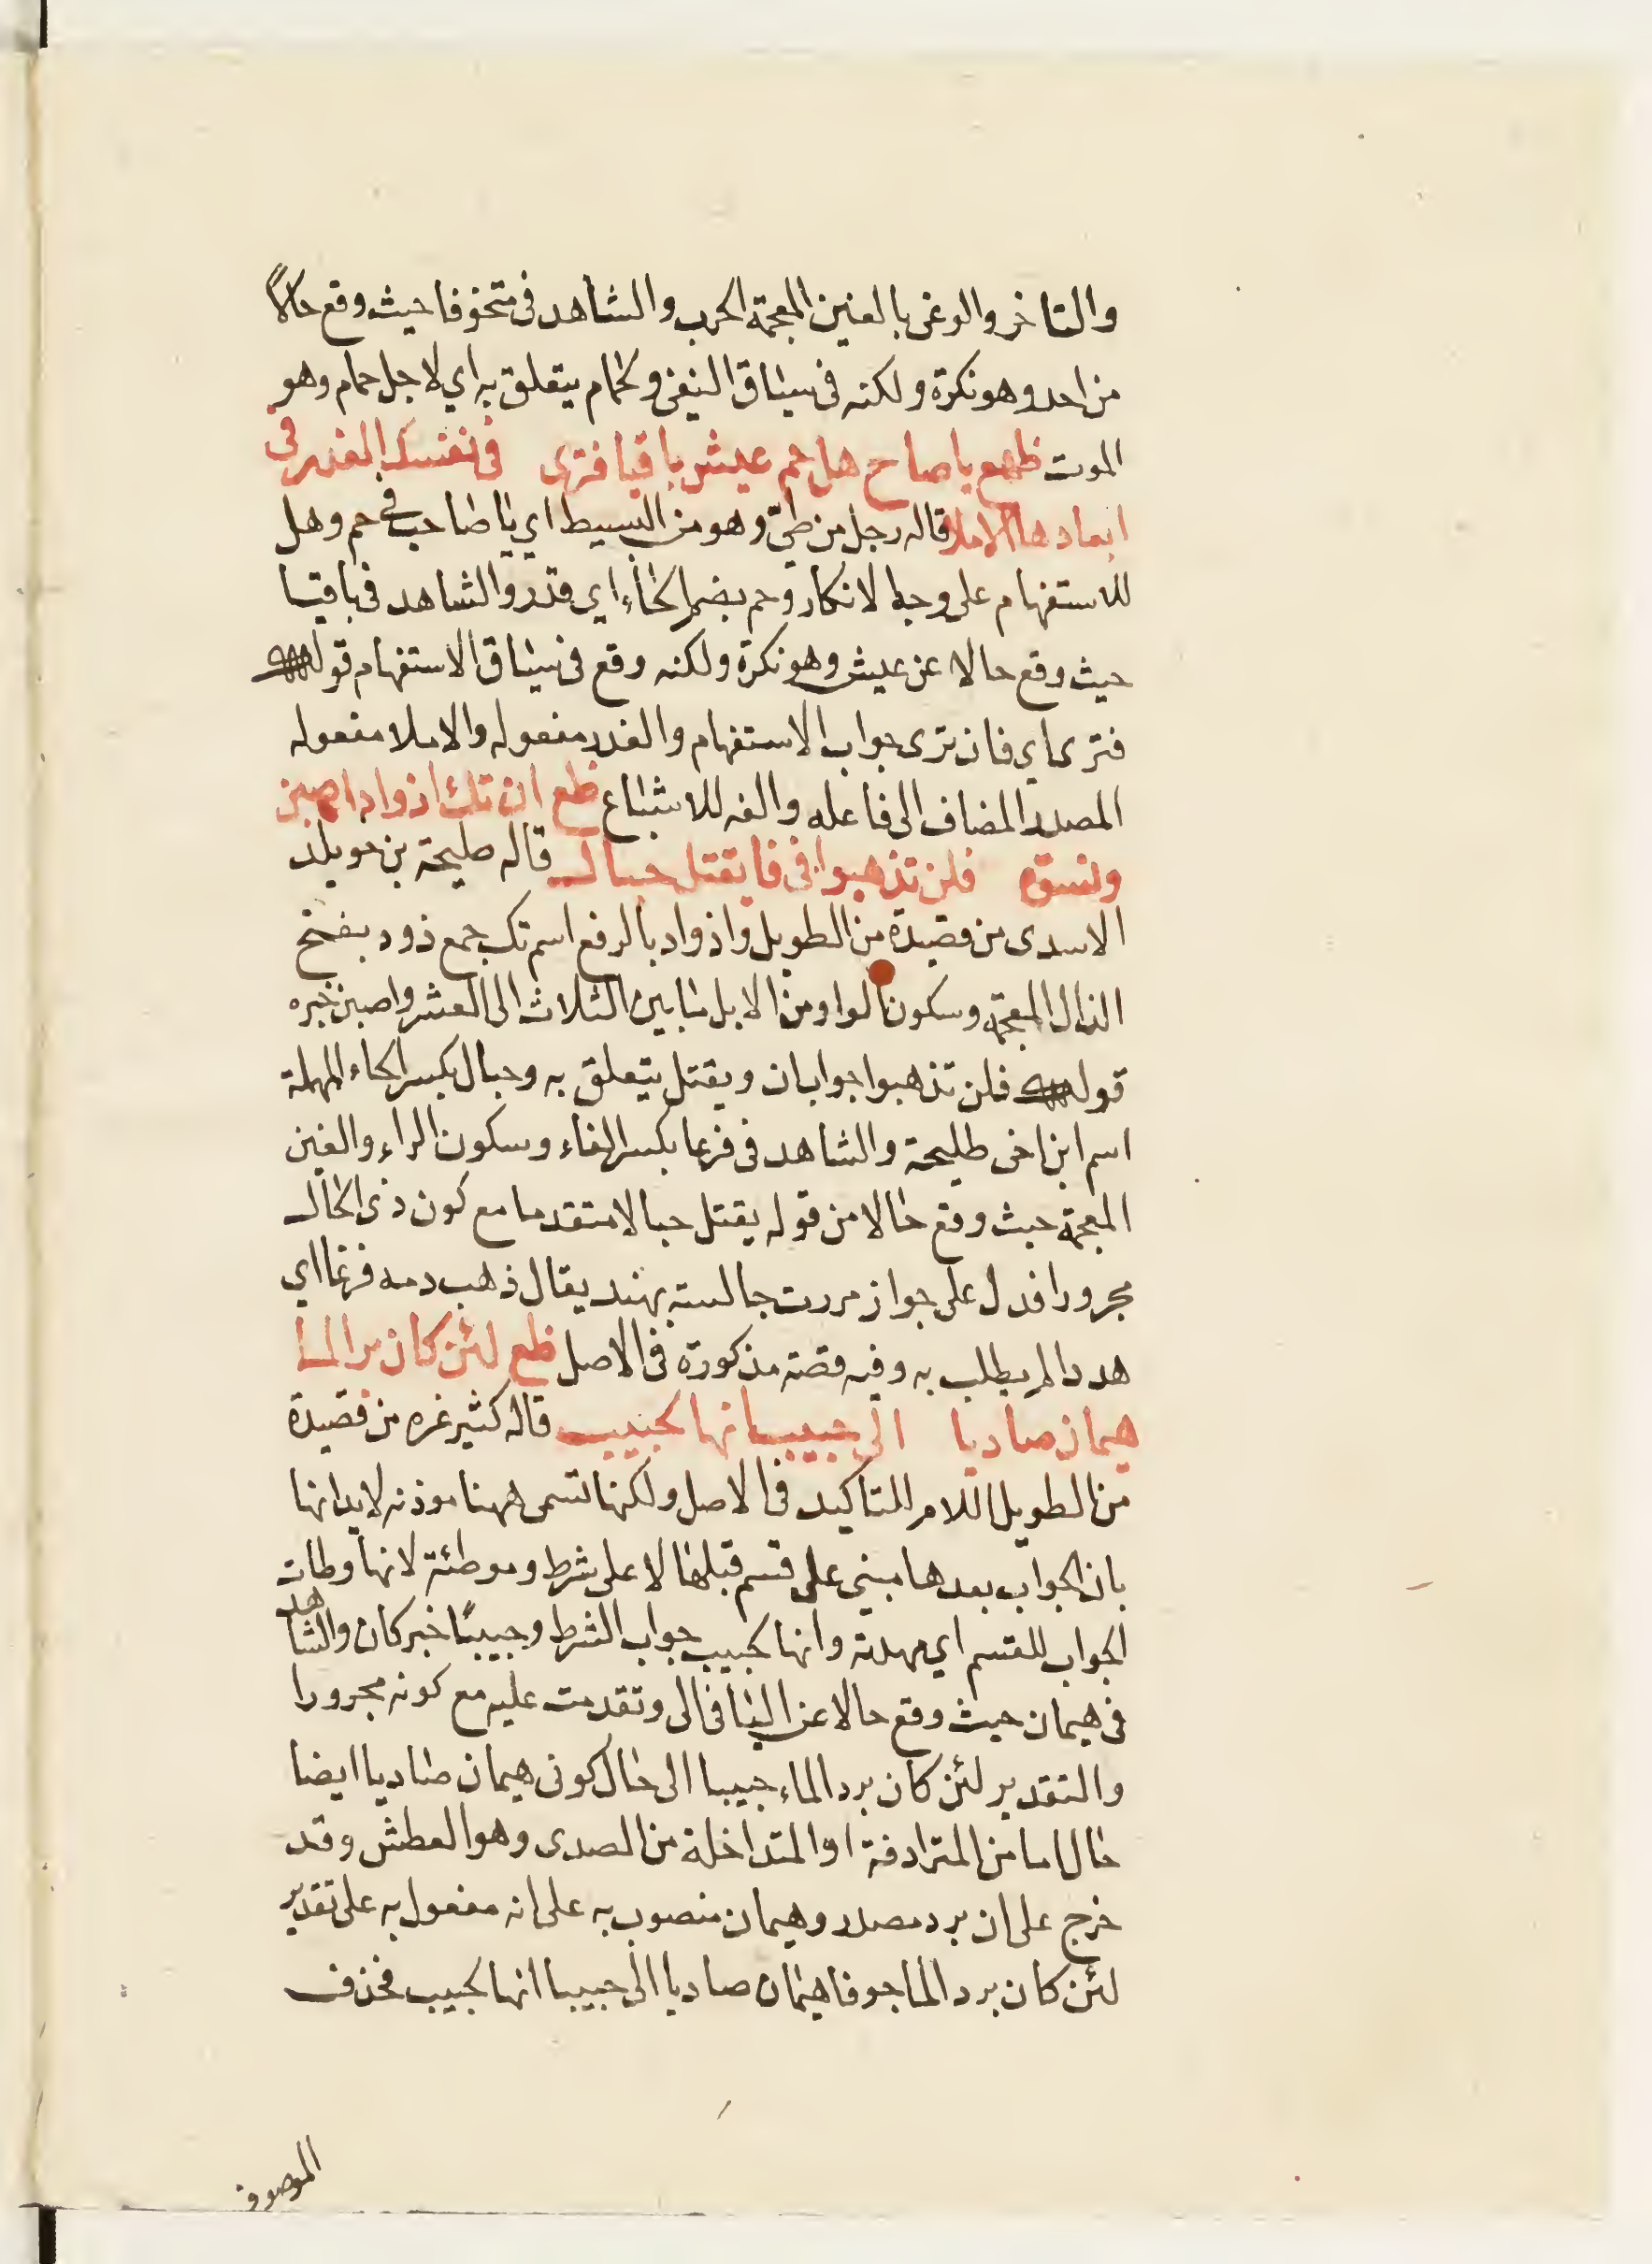 والتاخر والوغى بالغين المعجمة الحرب والشاهد فى متخوفا حيث وقع حالاً
من احد وهو نكرة ولكنه فى سياق النفى ولحمام يتعلق به اي لاجل حمام وهو
الموت ظهع يا صاح هل حم عيش باقيا فترى فى نفسك العذر فى
ابعادها الاملا قاله رجل من طيّ وهو من البسيط اي يا صاحب حم وهل
للاستفهام على وجه الانكار وحم بضم الحاء اي قدر والشاهد فى باقيا
حيث وقع حالا عن عيش وهو نكرة ولكنه وقع فى سياق الاستفهام قوله
فترى اي فان ترى جواب الاستفهام والغدر مفعوله والاملا مفعوله
المصدر المضاف الى فاعله والفه للاشباع ظع ان تك اذواد اصبن
ونسوة فلن تذهبوا فرغا بقتل حبال قاله طليحة بن خويلد
الاسدى من قصيدة من الطويل واذواد بالرفع اسم تك جمع ذود بفتح
الذال المعجمة وسكون الواو من الابل ما بين الثلاث الى العشر واصبن خبره
قوله فلن تذهبوا جواب ان وبقتل يتعلق به وحبال بكسر الحاء المهملة
اسم ابن اخى طليحة والشاهد فى فرغا بكسر الفاء وسكون الراء والغين
المعجمة حيث وقع حالا من قوله بقتل حبالا متقدما مع كون ذى الحال
مجرورا فدل على جواز مررت جالسة بهند يقال ذهب دمه فرغا اي
هددا لم يطلب به وفيه قصة مذكورة فى الاصل ظع لئن كان برد الما
هيمان صاديا الى حبيبا انها لحبيب قاله كثير عزه من قصيدة
من الطويل اللام للتاكيد فى الاصل ولكنها تسمى ههنا موذنه لايذانها
بان الجواب بعدها مبنى على قسم قبلها لا على شرط وموطئة لانها وطات
الجواب للقسم اي مهدته وانها لحبيب جواب الشرط وحبيبًا خبر كان والشاهد
فى هيمان حيث وقع حالا عن اليا فى الى وتقدمت عليه مع كونه مجرورا
والتقدير لئن كان برد الماء حبيبا الى حال كونى هيمان صاديا ايضا
حال اما من المترادفة او المتداخلة من الصدى وهو العطش وقد
خرج على ان برد مصدر وهيمان منصوب به على انه مفعول به على تقدير
لئن كان برد الما جوفا هيمان صاديا الى حبيبا انها لحبيب فحذف
الموصوف